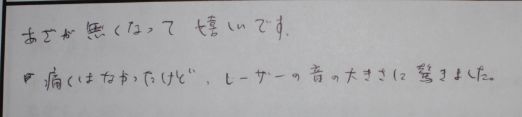 あざが無くなって嬉しいです.
痛くはなかったけど、レーザーの音の大きさに驚きました。